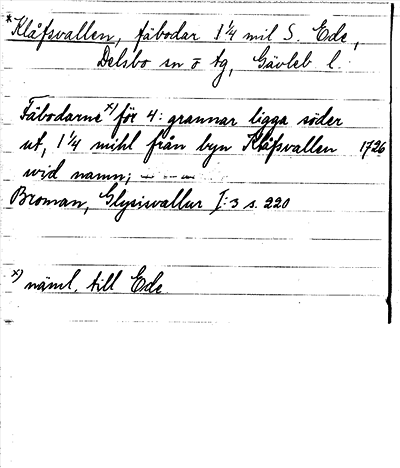 *Klåfsvallen, fäbodar 1 1/4 mil S. Ede,
Delsbo sn o tg, Gävleb l.
Fäbodarne x) för 4: grannar ligga söder
ut, 1 1/4 mihl från byn Klåfsvallen 1726
wid namn; — — —
Broman, Glysisvallur I:3 s. 220
x) näml. till Ede